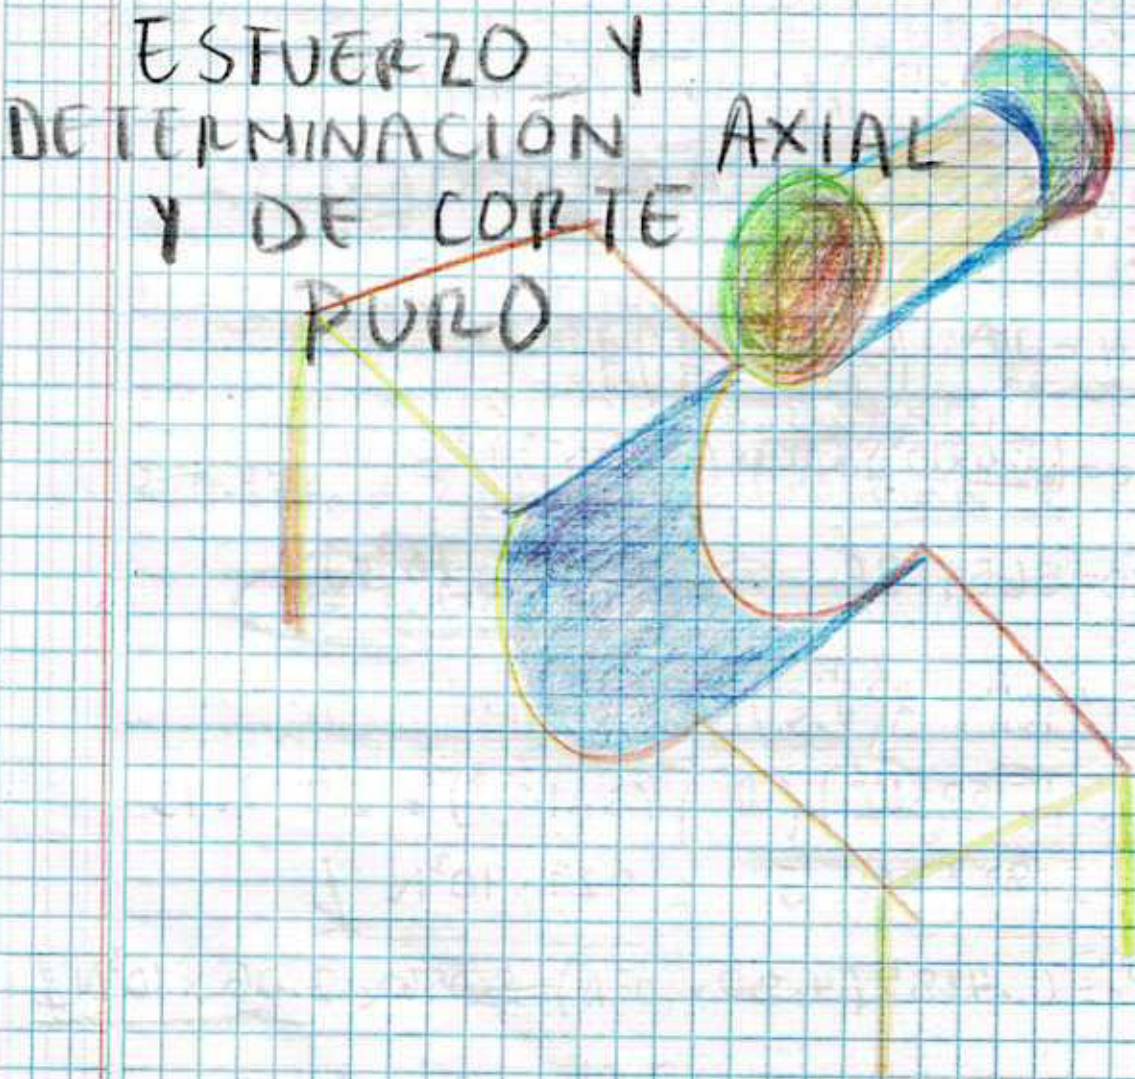 ESFUERZO Y
DETERMINACIÓN AXIAL
Y DE CORTE
PURO